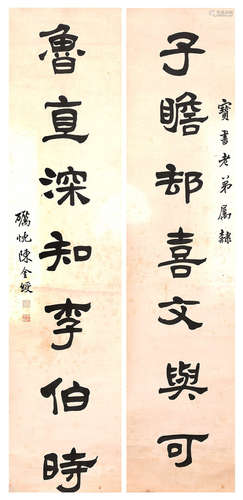 寶書老弟属隸
子瞻却喜文與可
魯直深知李伯時
礪忱陳全綬